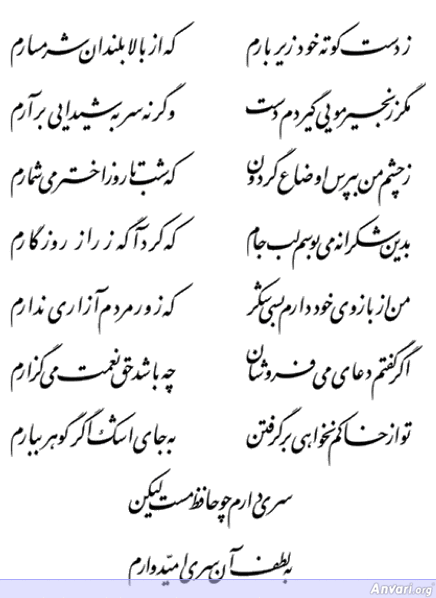 ز دست کوته خود زیر بارم که از بالابلندان شرمسارم
مگر زنجیر مویی گیردم دست وگرنه سر به شیدایی برآرم
ز چشم من بپرس اوضاع گردون که شب تا روز اختر می‌شمارم
بدین شکرانه می‌بوسم لب جام که کرد آگه ز راز روزگارم
من از بازوی خود دارم بسی شکر که زور مردم آزاری ندارم
اگر گفتم دعای می فروشان چه باشد حق نعمت می‌گزارم
تو از خاکم نخواهی برگرفتن به جای اشک اگر گوهر ببارم
سری دارم چو حافظ مست لیکن
به لطف آن سری امیدوارم
Anvari.org